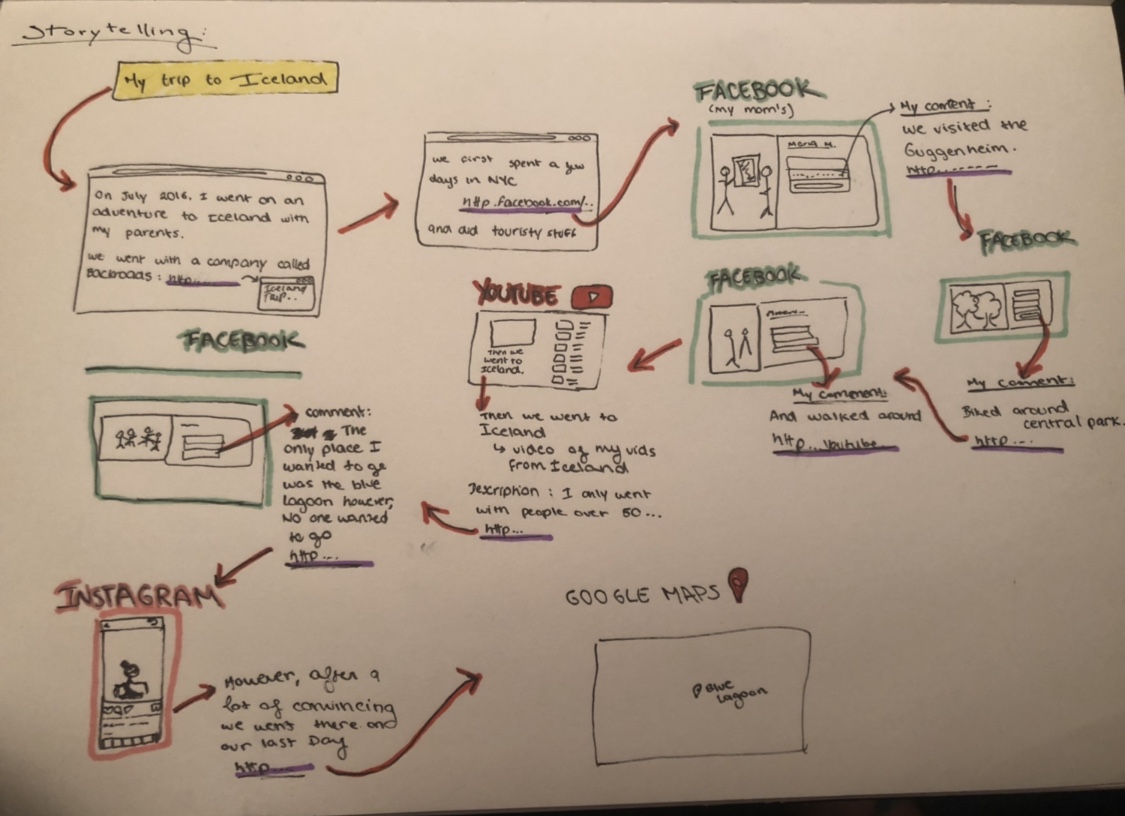 Storytelling:
My trip to Iceland
On July 2016, I went on an
adventure to Iceland with
my parents.
we went with a company called
Backroads : http........
Iceland
Trip..
we first spent a few
days in NYC
http.facebook.com/..
and did touristy stuff
FACEBOOK
(my mom's)
Maria M.
My content :
we visited the
Guggenheim.
http..........
FACEBOOK
My comment:
Biked around
central park.
http...
FACEBOOK
My Comment:
And walked around
http...youtube......
YOUTUBE
Then we
went to
Iceland.
Then we went to
Iceland
↳ video of my vids
from Iceland
Description : I only went
with people over 50...
http...
FACEBOOK
comment:
The
only place I
wanted to go
was the blue
lagoon however,
No one wanted
to go
http....
INSTAGRAM
However, after a
lot of convincing
we went there and
our last Day
http......
GOOGLE MAPS
Blue
Lagoon